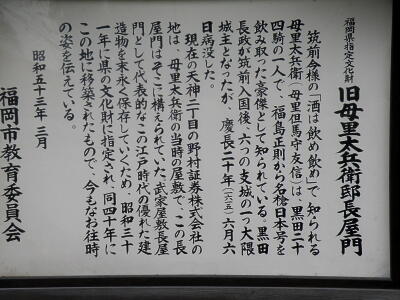 福岡県指定文化財
旧母里太兵衛邸長屋門
筑前今様の「酒は飲め飲め」で知られる
母里太兵衛(母里但馬守友信)は、黒田二十
四騎の一人で、福島正則から名槍日本号を
飲み取った豪傑として知られている。黒田
長政が筑前入国後、六つの支城の一つ大隈
城主となったが、慶長二十年(一六一五)六月六
日病没した。
現在の天神二丁目の野村証券株式会社の
地は、母里太兵衛の当時の屋敷で、この長
屋門はそこに構えられていた。武家屋敷長屋
門として代表的なこの江戸時代の優れた建
造物を末永く保存していくため、昭和三十
一年に県の文化財に指定され、同四十年に
この地に移築されたもので、今もなお往時
の姿を伝えている。
昭和五十三年三月
福岡市教育委員会